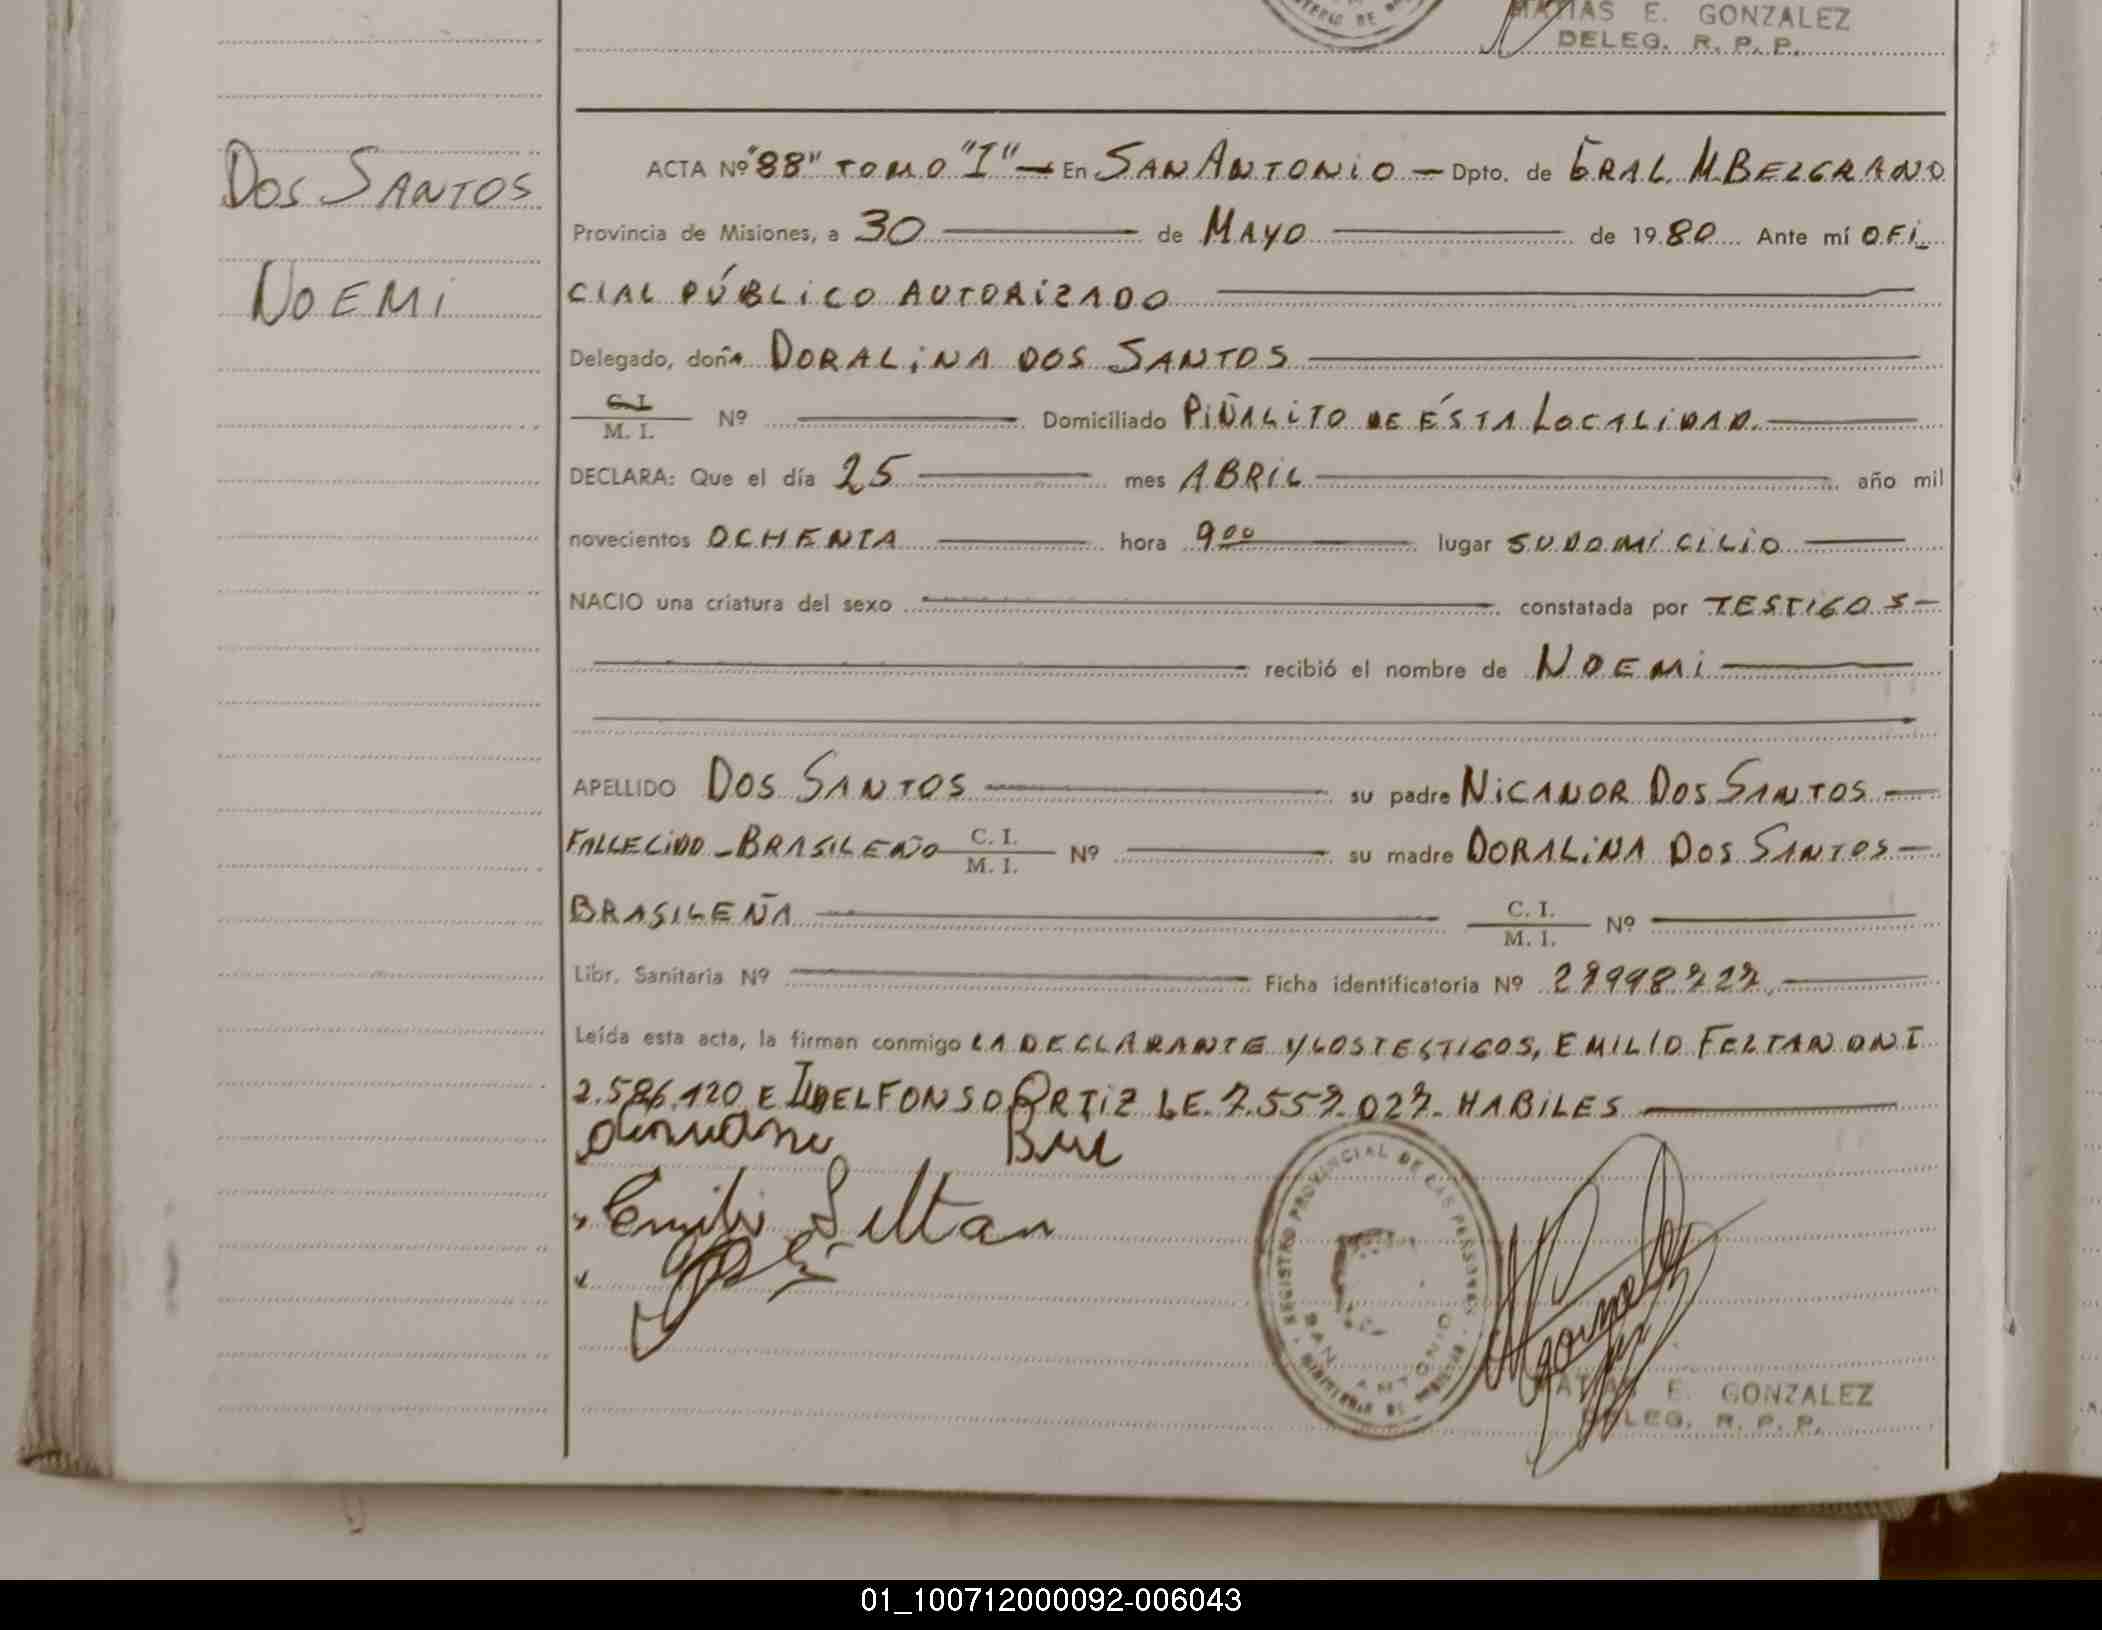 MATIAS E. GONZALEZ
DELEG. R. P. P.
DOS SANTOS
NOEMI
ACTA Nº "88" TOMO "I" — En SAN ANTONIO — Dpto. de GRAL M. BELGRANO
Provincia de Misiones, a 30 de MAYO de 1980 Ante mí OFI_
CIAL PÚBLICO AUTORIZADO
Delegado, doña DORALINA DOS SANTOS
C. I. / M. I. Nº Domiciliado PIÑALITO DE ÉSTA LOCALIDAD.
DECLARA: Que el día 25 mes ABRIL año mil
novecientos OCHENTA hora 9 00 lugar SU DOMICILIO
NACIO una criatura del sexo constatada por TESTIGOS —
recibió el nombre de NOEMI
APELLIDO DOS SANTOS su padre NICANOR DOS SANTOS —
FALLECIDO - BRASILEÑO C. I. / M. I. Nº su madre DORALINA DOS SANTOS —
BRASILEÑA C. I. / M. I. Nº
Libr. Sanitaria Nº Ficha identificatoria Nº 27998727
Leída esta acta, la firman conmigo LA DECLARANTE Y LOS TESTIGOS, EMILIO FELTAN DNI
2.586.120 E ILDELFONSO ORTIZ LE. 7.557.027. HABILES
Emilio Feltan
REGISTRO PROVINCIAL DE LAS PERSONAS
SAN ANTONIO
MATIAS E. GONZALEZ
DELEG. R. P. P.
01_100712000092-006043